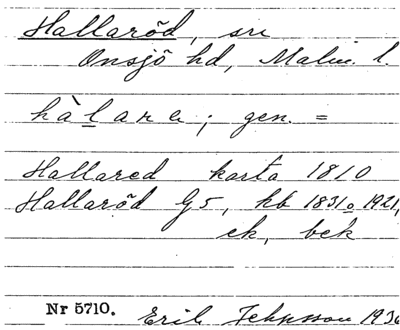 Hallaröd, sn
Onsjö hd, Malm. l.
hàlare; gen. =
Hallared karta 1810
Hallaröd G5, hb 1831 o 1921,
ek, bek
Nr 5710. Erik 193